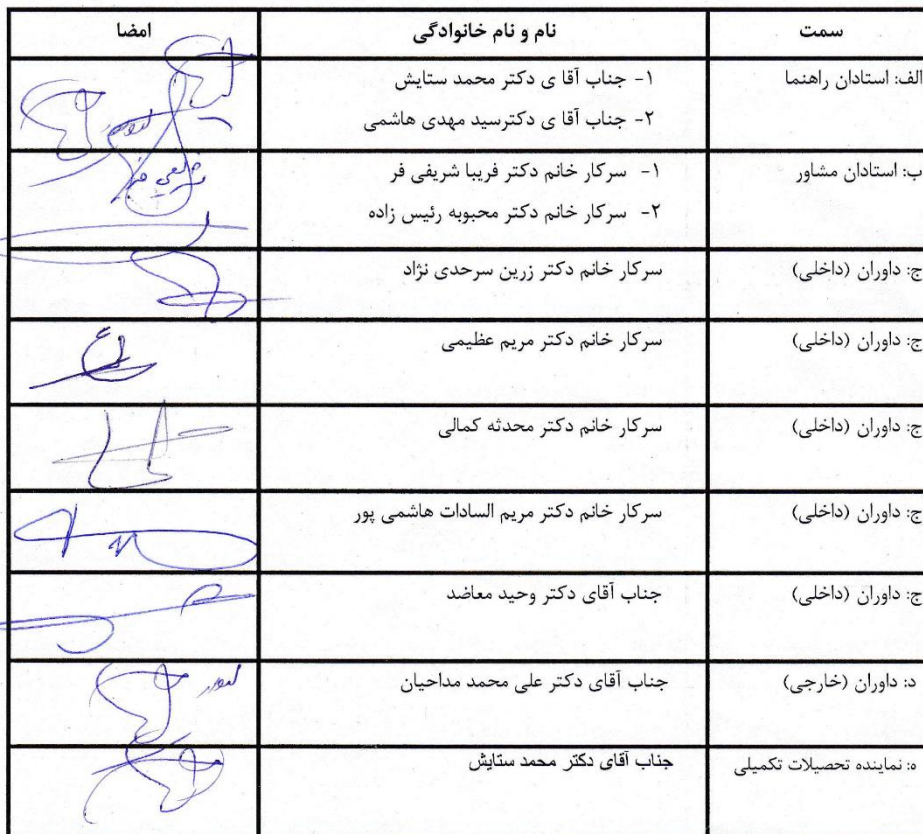 سمت نام و نام خانوادگی امضا
الف: استادان راهنما ۱- جناب آقا ی دکتر محمد ستایش
۲- جناب آقا ی دکترسید مهدی هاشمی
ب: استادان مشاور ۱- سرکار خانم دکتر فریبا شریفی فر
۲- سرکار خانم دکتر محبوبه رئیس زاده
شریفی فر
ج: داوران (داخلی) سرکار خانم دکتر زرین سرحدی نژاد
ج: داوران (داخلی) سرکار خانم دکتر مریم عظیمی
ج: داوران (داخلی) سرکار خانم دکتر محدثه کمالی
ج: داوران (داخلی) سرکار خانم دکتر مریم السادات هاشمی پور
ج: داوران (داخلی) جناب آقای دکتر وحید معاضد
د: داوران (خارجی) جناب آقای دکتر علی محمد مداحیان
ه: نماینده تحصیلات تکمیلی جناب آقای دکتر محمد ستایش